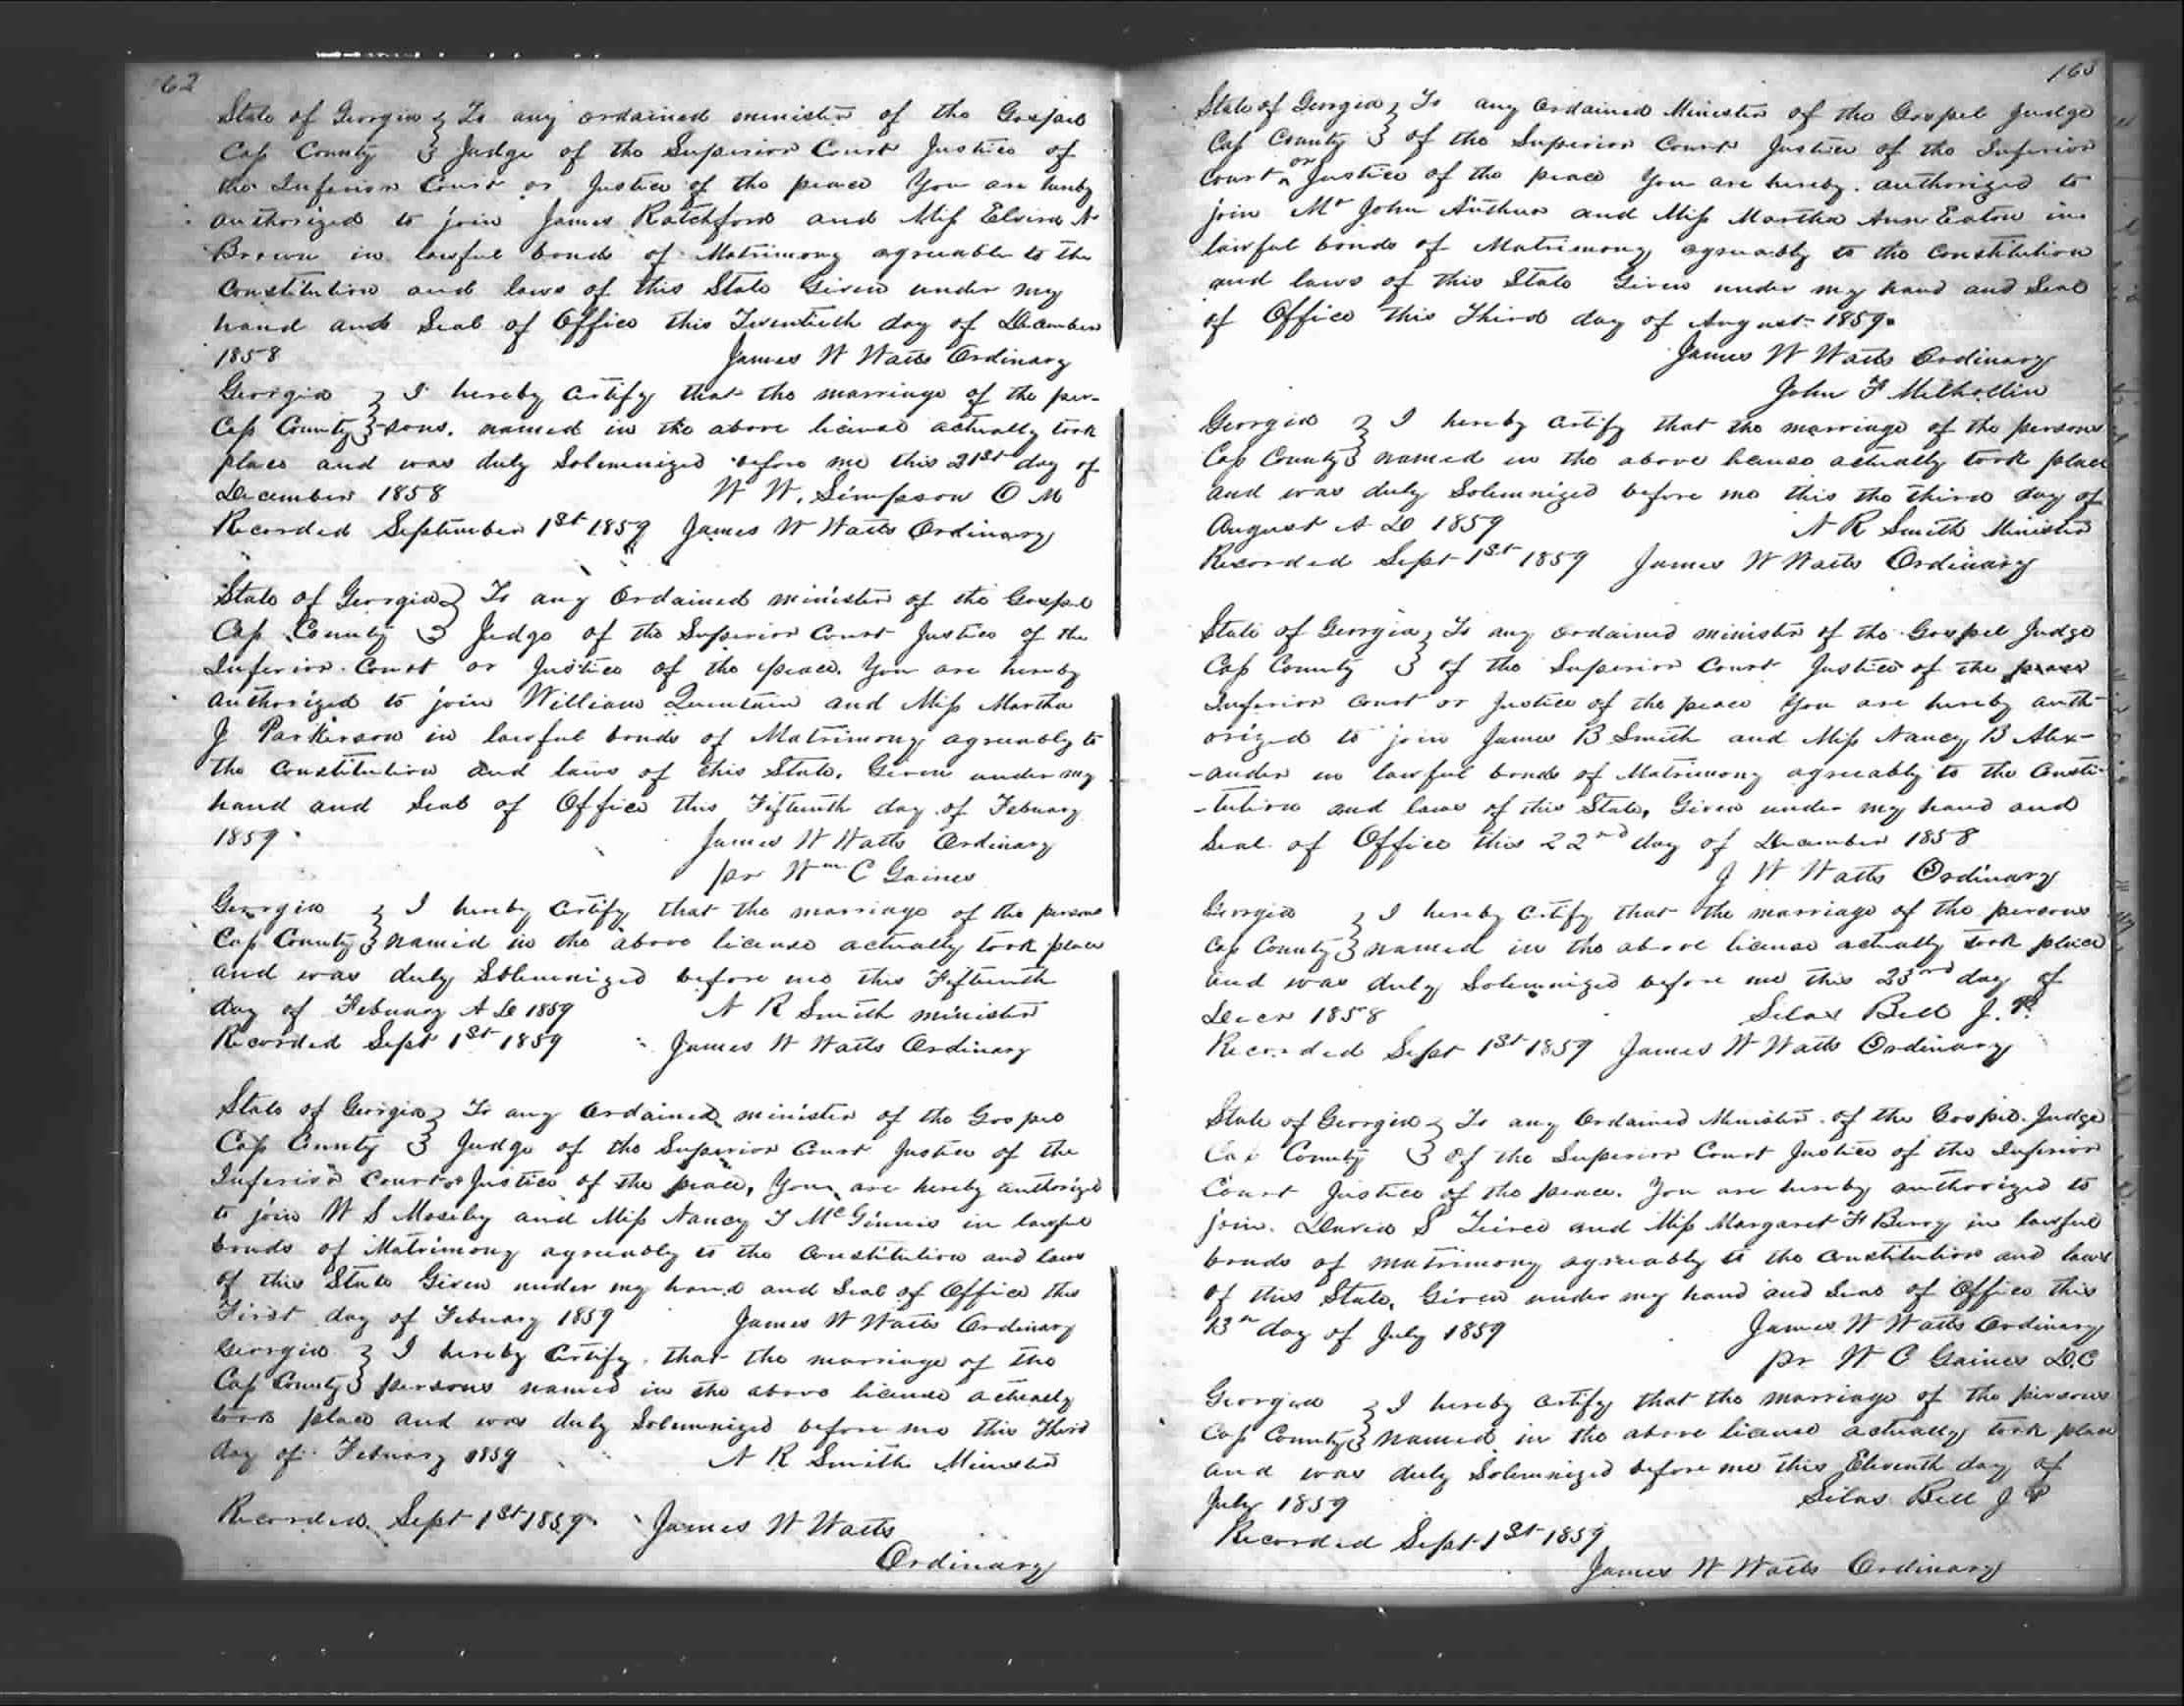 62
State of Georgia } To any ordained minister of the Gospel
Cass County } Judge of the Superior Court Justice of
the Inferior Court or Justice of the peace You are hereby
authorized to join James Ratchford and Miss Elvira N
Brown in lawful bonds of Matrimony agreeable to the
Constitution and laws of this State Given under my
hand and Seal of Office this Twentieth day of December
1858 James W Watts Ordinary
Georgia } I hereby certify that the marriage of the per-
Cass County } -sons. named in the above license actually took
place and was duly Solemnized before me this 21st day of
December 1858 W W. Simpson O M
Recorded September 1st 1859 James W Watts Ordinary
State of Georgia } To any Ordained minister of the Gospel
Cass County } Judge of the Superior Court Justice of the
Inferior Court or Justice of the peace. You are hereby
authorized to join William Quintain and Miss Martha
J Parkerson in lawful bonds of Matrimony agreeably to
the Constitution and laws of this State. Given under my
hand and Seal of Office this Fifteenth day of Febuary
1859 James W Watts Ordinary
pr Wm C Gaines
Georgia } I hereby certify that the marriage of the persons
Cass County } named in the above license actually took place
and was duly Solemnized before me this Fifteenth
day of Febuary A D 1859 N R Smith minister
Recorded Sept 1st 1859 James W Watts Ordinary
State of Georgia } To any Ordained minister of the Gospel
Cass County } Judge of the Superior Court Justice of the
Inferior Court or Justice of the peace, You are hereby authorized
to join W S Moseley and Miss Nancy T McGinnis in lawful
bonds of Matrimony agreeably to the Constitution and laws
of this State Given under my hand and Seal of Office this
First day of Febuary 1859 James W Watts Ordinary
Georgia } I hereby certify that the marriage of the
Cass County } persons named in the above license actually
took place and was duly Solemnized before me this Third
day of Febuary 1859 N R Smith Minister
Recorded Sept 1st 1859 James W Watts
Ordinary
163
State of Georgia } To any Ordained Minister of the Gospel Judge
Cass County } of the Superior Court Justice of the Inferior
Court or Justice of the peace You are hereby authorized to
join Mr John Arthur and Miss Martha Ann Eaton in
lawful bonds of Matrimony agreeably to the Constitution
and laws of this State Given under my hand and Seal
of Office this Third day of August 1859.
James W Watts Ordinary
John F Milhollin
Georgia } I hereby certify that the marriage of the persons
Cass County } named in the above license actually took place
and was duly Solemnized before me this the third day of
August A D 1859 N R Smith Minister
Recorded Sept 1st 1859 James W Watts Ordinary
State of Georgia } To any ordained minister of the Gospel Judge
Cass County } of the Superior Court Justice of the peace
Inferior Court or Justice of the peace You are hereby auth-
orized to join James B Smith and Miss Nancy B Alex-
-ander in lawful bonds of Matrimony agreeably to the Consti-
-tution and laws of this State, Given under my hand and
Seal of Office this 22nd day of December 1858
J W Watts Ordinary
Georgia } I hereby certify that the marriage of the persons
Cass County } named in the above license actually took place
and was duly Solemnized before me this 23rd day of
Decr 1858 Silas Bell J. P.
Recorded Sept 1st 1859 James W Watts Ordinary
State of Georgia } To any Ordained Minister of the Gospel Judge
Cass County } of the Superior Court Justice of the Inferior
Court Justice of the peace. You are hereby authorized to
join. David S Teirce and Miss Margaret F Berry in lawful
bonds of matrimony agreeably to the Constitution and laws
of this State, Given under my hand and Seal of Office this
day of July 1859 James W Watts Ordinary
pr W C Gaines D.C
Georgia } I hereby certify that the marriage of the persons
Cass County } named in the above license actually took place
and was duly Solemnized before me this Eleventh day of
July 1859 Silas Bell J P
Recorded Sept 1st 1859
James W Watts Ordinary